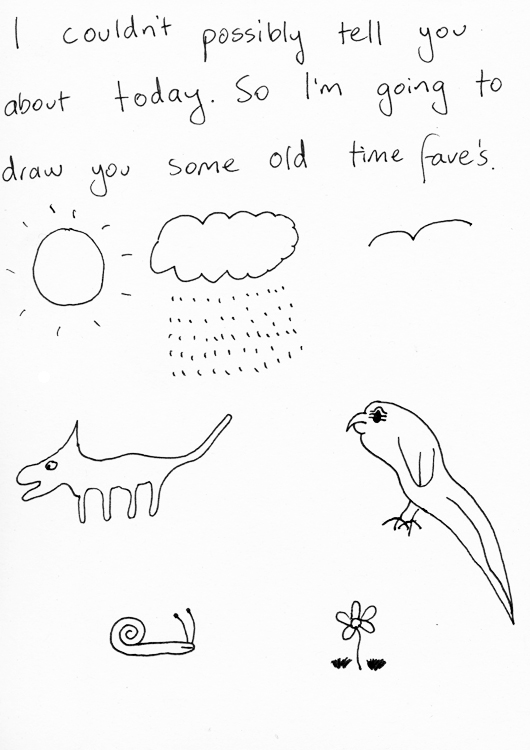 I couldn't possibly tell you
about today. So I'm going to
draw you some old time fave's.